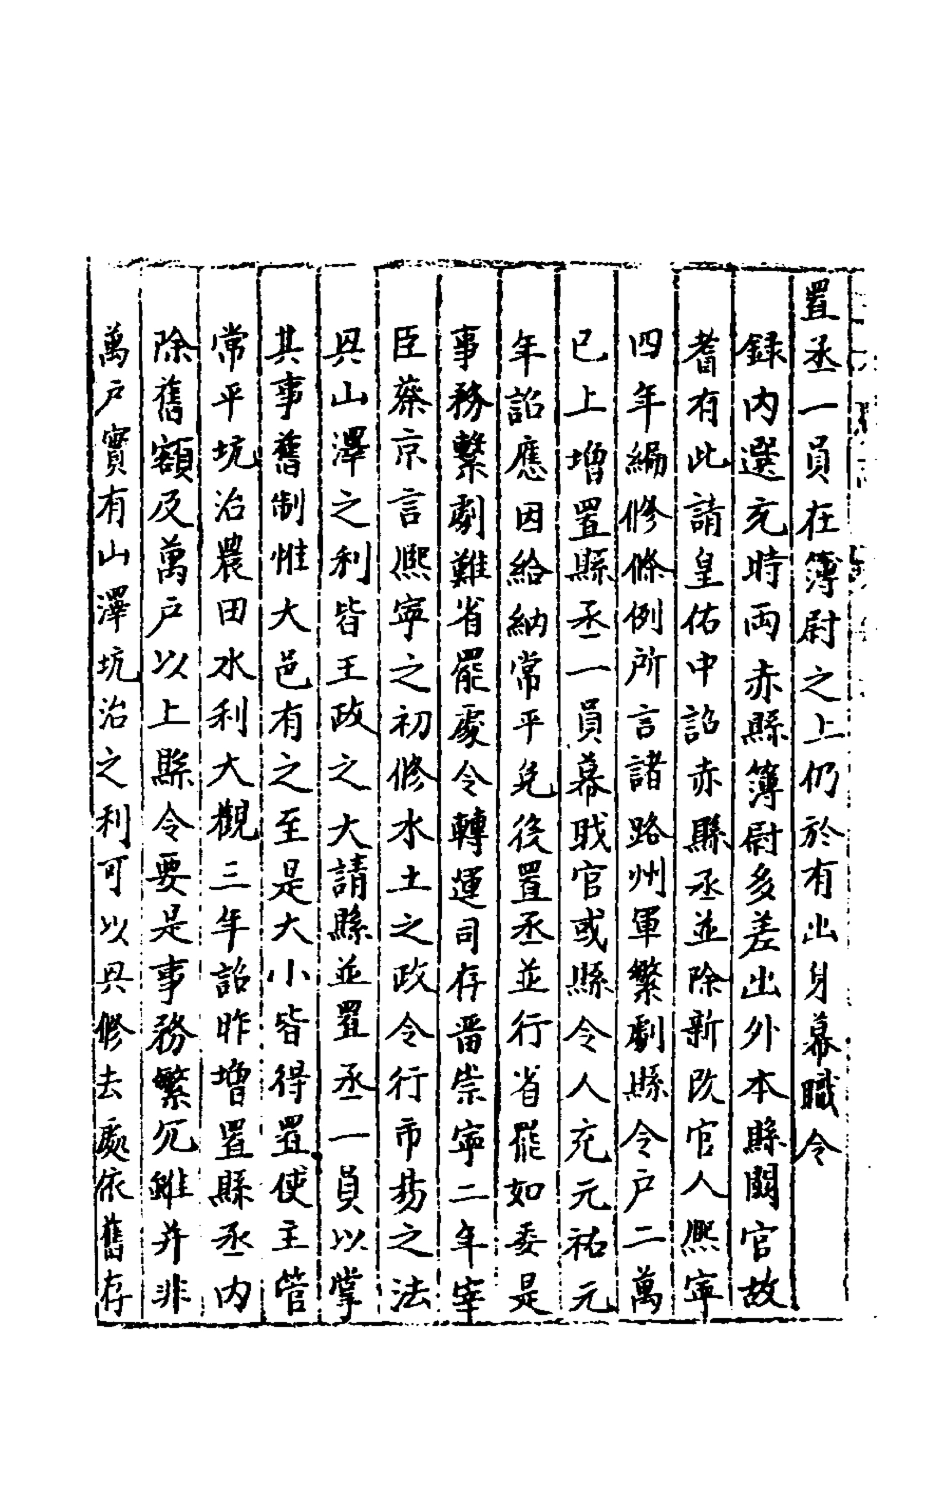 置丞一員在簿尉之上仍於有出身幕職令
録内選充時両赤縣簿尉多差出外本縣闕官故
耆有此請皇佑中詔赤縣丞並除新改官人熈寧
四年編修條例所言諸路州軍繁劇縣令戸二萬
已上增置縣丞一員幕戝官或縣令人充元祐元
年詔應因給納常平免後置丞並行省罷如委是
事務繫劇難省罷處令轉運司存畱崇寧二年宰
臣蔡京言熈寧之初修水土之政令行市易之法
興山澤之利皆王政之大請縣並置丞一員以掌
其事舊制惟大邑有之至是大小皆得置使主管
常平坑治農田水利大觀三年詔昨增置縣丞内
除舊額及萬戸以上縣令要是事務繁冗雖并非
萬戸實有山澤坑治之利可以興修去處依舊存